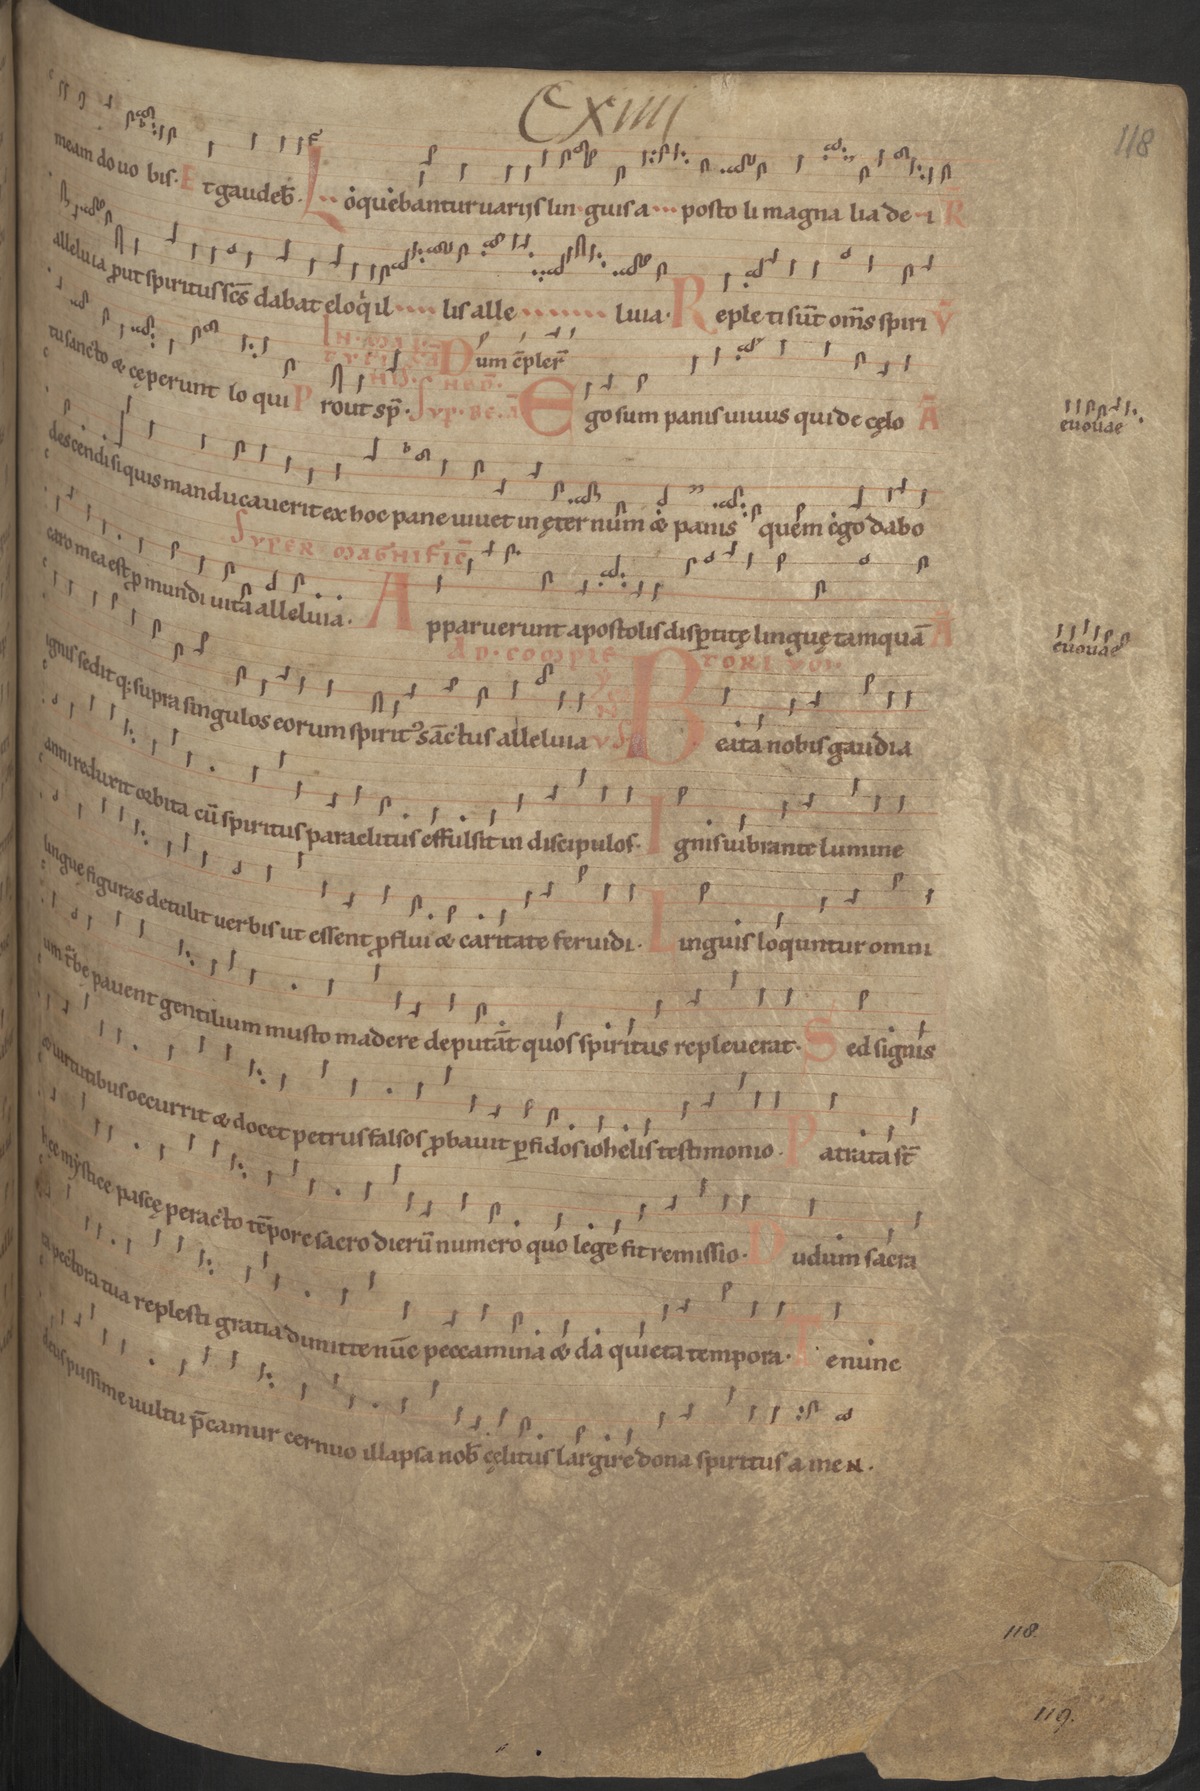 CXIIII
118
meam do uo bis. Et gaudeb̄. Loquebantur uarijs lin guis a posto li magna lia de i R̄
alleluia ꝓut spiritus sc̄s dabat eloq̇ il lis alle luia. Repleti sūt om̄s spiri V̄
In. mat
Dum c̄pler̄
tu sancto & cęperunt lo qui P rout sp̄. Syp. Be. ā Ego sum panis uiuus qui de cęlo Ā
euouae
descendi si quis manducauerit ex hoc pane uiuet in ęternum & panis quem ego dabo
Syper magnific̄
caro mea est ꝓ mundi uita alleluia. Apparuerunt apostolis disꝑtitę linguę tamquā Ā
euouae
Ad. comple torivm.
ignis sedit q; supra singulos eorum spirit᾽ sāctus alleluia Beata nobis gaudia
anni reduxit orbita cū spiritus paraclitus effulsit in discipulos. Ignis uibrante lumine
linguę figuras detulit uerbis ut essent ꝓflui & caritate feruidi. Linguis loquntur omni
um t̄bę pauent gentilium musto madere deputāt quos spiritus repleuerat. Sed signis
& uirtutibus occurrit & docet petrus falsos ꝓbauit ꝑfidos iohelis testimonio. Patrata st̄
hęc mystice paschę peracto tēpore sacro dierū numero quo lege fit remissio. Dudum sacra
ta pectora tua replesti gratia dimitte nūc peccamina & da quieta tempora. Te nunc
deus pissime uultu p̄camur cernuo illapsa nob̄ cęlitus largire dona spiritus amen.
118.
119.